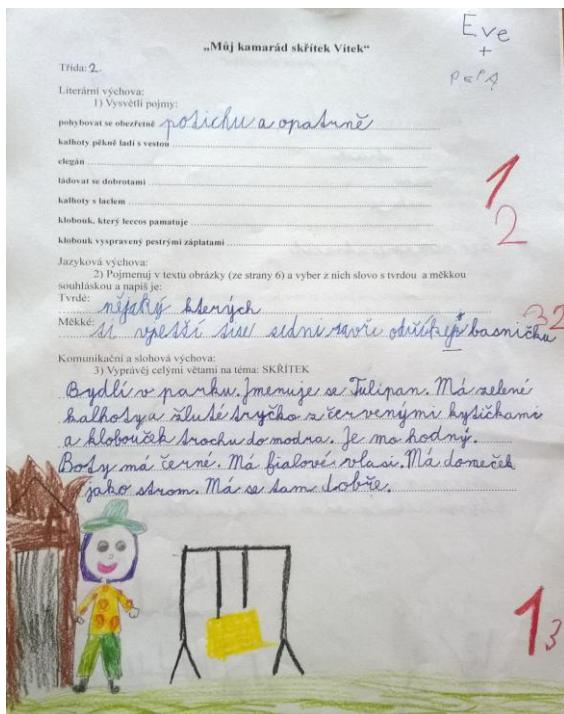 Eve
+
PEPA
„Můj kamarád skřítek Vítek“
Třída: 2.
Literární výchova:
1) Vysvětli pojmy:
pohybovat se obezřetně potichu a opatrně
kalhoty pěkně ladí s vestou
elegán
ládovat se dobrotami
kalhoty s laclem
klobouk, který leccos pamatuje
klobouk vyspravený pestrými záplatami
1
2
Jazyková výchova:
2) Pojmenuj v textu obrázky (ze strany 6) a vyber z nich slovo s tvrdou a měkkou
souhláskou a napiš je:
Tvrdé: nějaký kterých
Měkké: si sedni basničku
32
Komunikační a slohová výchova:
3) Vyprávěj celými větami na téma: SKŘÍTEK
Bydlí v parku. Jmenuje se Tulipan. Má zelené
kalhoty a žluté tryčko z červenými kytičkami
a klobouček trochu do modra. Je mo hodný.
Boty má černé. Má fialové vlasi. Má domeček
jako strom. Má se tam dobře.
1
3